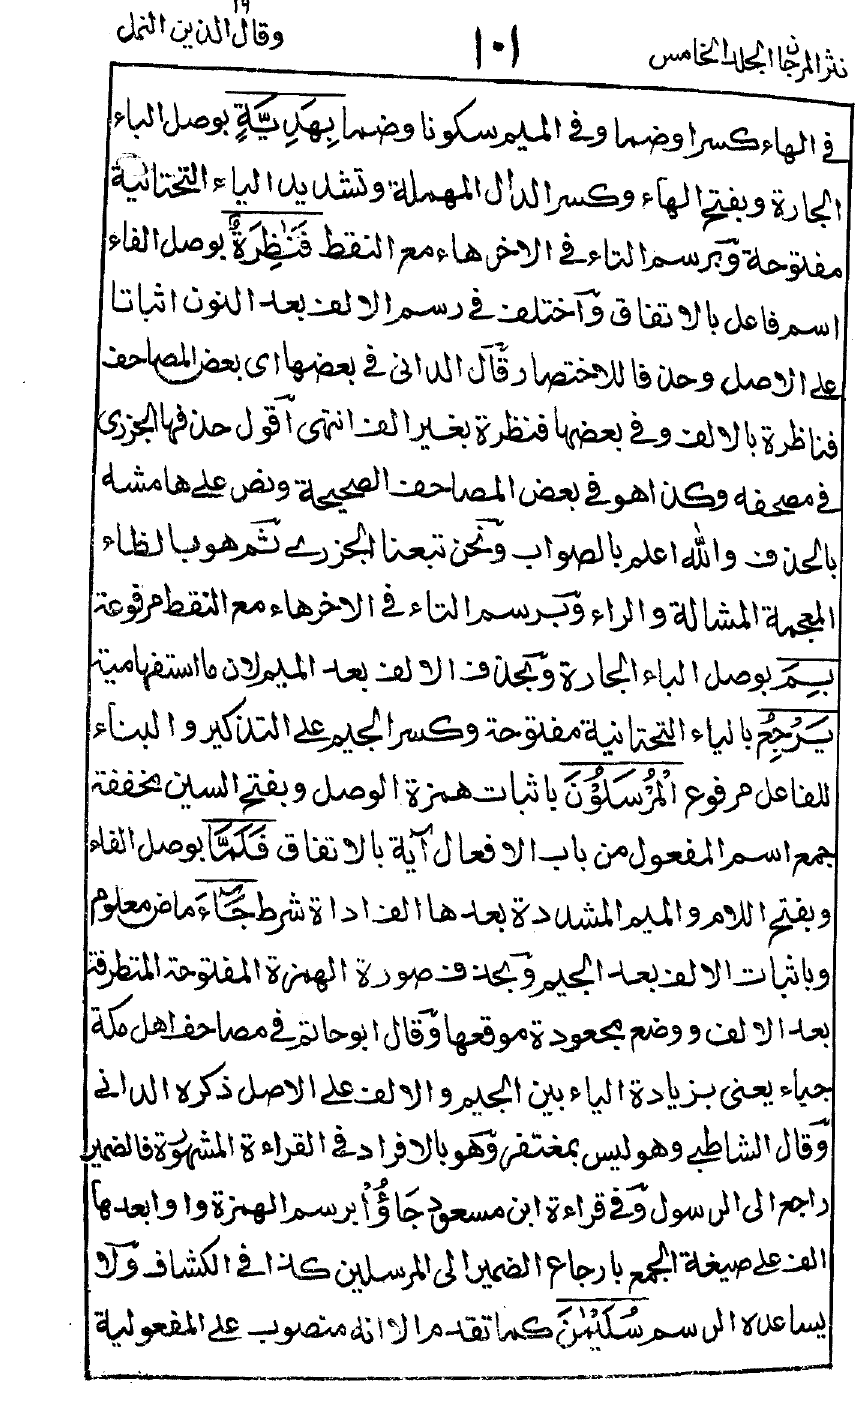 نثر المرجان الجلد الخامس
١٠١
وقال الذين ١٩ النمل
في الهاء كسرا وضما وفي الميم سكونا وضما بِهَدِيَّةٍ بوصل الباء
الجارة وبفتح الهاء وكسر الدال المهملة وتشديد الياء التحتانية
مفتوحة وبرسم التاء في الاخر هاء مع النقط فَنٰظِرَةٌ بوصل الفاء
اسم فاعل بالاتفاق واختلف في رسم الالف بعد النون اثباتا
على الاصل وحذفا للاختصار قال الداني في بعضها اى بعض المصاحف
فناظرة بالالف وفي بعضها فنظرة بغير الف انتهى اقول حذفها الجزرى
في مصحفه وكذا هو في بعض المصاحف الصحيحة ونص على هامشه
بالحذف والله اعلم بالصواب ونحن تبعنا الجزرى ثم هو بالظاء
المعجمة المشالة والراء وبرسم التاء في الاخر هاء مع النقط مرفوعة
بِمَ بوصل الباء الجارة وبحذف الالف بعد الميم لان ما استفهامية
يَرْجِعُ بالياء التحتانية مفتوحة وكسر الجيم على التذكير والبناء
للفاعل مرفوع الْمُرْسَلُوْنَ باثبات همزة الوصل وبفتح السين مخففة
جمع اسم المفعول من باب الافعال آية بالاتفاق فَلَمَّا بوصل الفاء
وبفتح اللام والميم المشددة بعدها الف اداة شرط جَآءَ ماض معلوم
وباثبات الالف بعد الجيم وبحذف صورة الهمزة المفتوحة المتطرفة
بعد الالف ووضع مجعودة موقعها وقال ابو حاتم في مصاحف اهل مكة
جياء يعنى بزيادة الياء بين الجيم والالف على الاصل ذكره الدانى
وقال الشاطبى وهو ليس بمغتفر وهو بالافراد في القراءة المشهورة فالضمير
راجع الى الرسول وفي قراءة ابن مسعود جَاؤُا برسم الهمزة واوا بعدها
الف على صيغة الجمع بارجاع الضمير الى المرسلين كذا في الكشاف ولا
يساعده الرسم سُلَيْمٰنَ كما تقدم الا انه منصوب على المفعولية